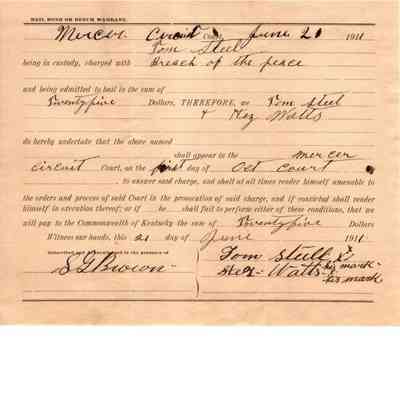 BAIL BOND OR BENCH WARRANT.
Mercer Circuit Court, June 21 1911
Tom Steel
being in custody, charged with Breach of the peace
and being admitted to bail in the sum of
Twenty five Dollars, THEREFORE, we Tom Steel
+ Hez Watts
do hereby undertake that the above named
shall appear in the Mercer
Circuit Court, on the first day of Oct Court
, to answer said charge, and shall at all times render himself amenable to
the orders and process of said Court in the prosecution of said charge, and if convicted shall render
himself in execution thereof; or if he shall fail to perform either of these conditions, that we
will pay to the Commonwealth of Kentucky the sum of Twenty five Dollars
Witness our hands, this 21 day of June 1911
Subscribed and acknowledged in the presence of
Tom Steel X
his mark
Hez Watts X
his mark